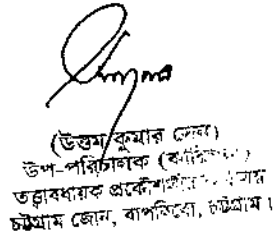 (উত্তম কুমার সেন)
উপ-পরিচালক (কারিগরী)
তত্ত্বাবধায়ক প্রকৌশলীর কার্যালয়
চট্টগ্রাম জোন, বাপবিবো, চট্টগ্রাম।